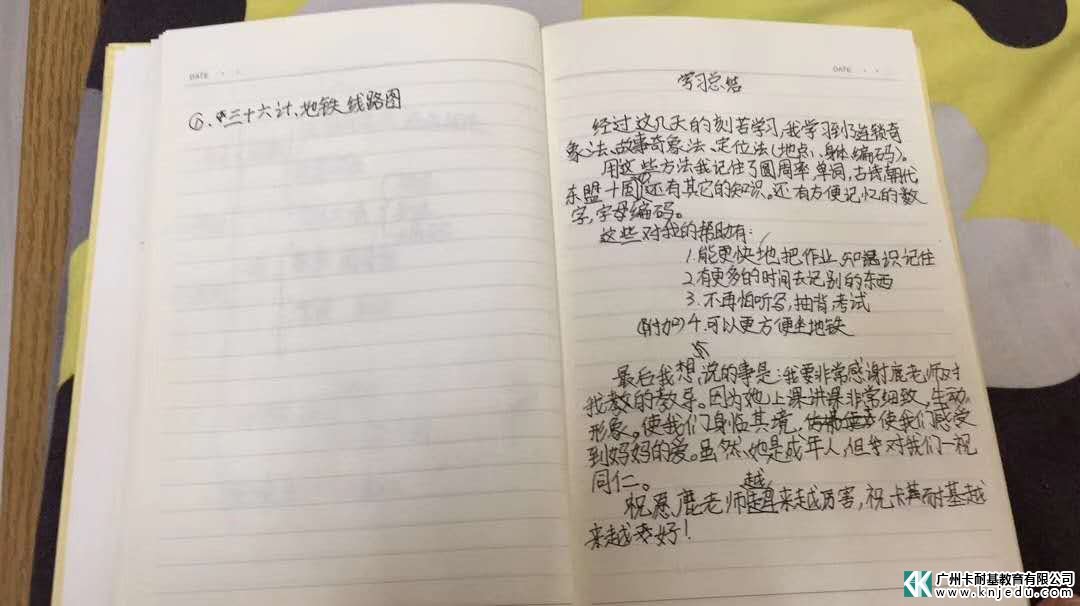 DATE
⑥、三十六计、地铁线路图
DATE
学习总结
经过这几天的刻苦学习,我学习到了连锁奇
象法、故事奇象法、定位法(地点、身体、编码)。
用这些方法我记住了圆周率,单词,古诗,朝代
东盟十国,还有其它的知识。还有方便记忆的数
字,字母编码。
这些对我的帮助有:
1.能更快地把作业,知识记住
2.有更多的时间去记别的东西
3.不再怕听写,抽背,考试
(附加)4.可以更方便坐地铁
最后我想说的事是:我要非常感谢鹿老师对
我教的教导。因为她上课讲课非常细致,生动
形象。使我们身临其境,使我们感受
到妈妈的爱。虽然她是成年人,但对我们一视
同仁。
越
祝愿鹿老师越来越厉害,祝卡耐基越
来越好!
广州卡耐基教育有限公司
www.knjedu.com